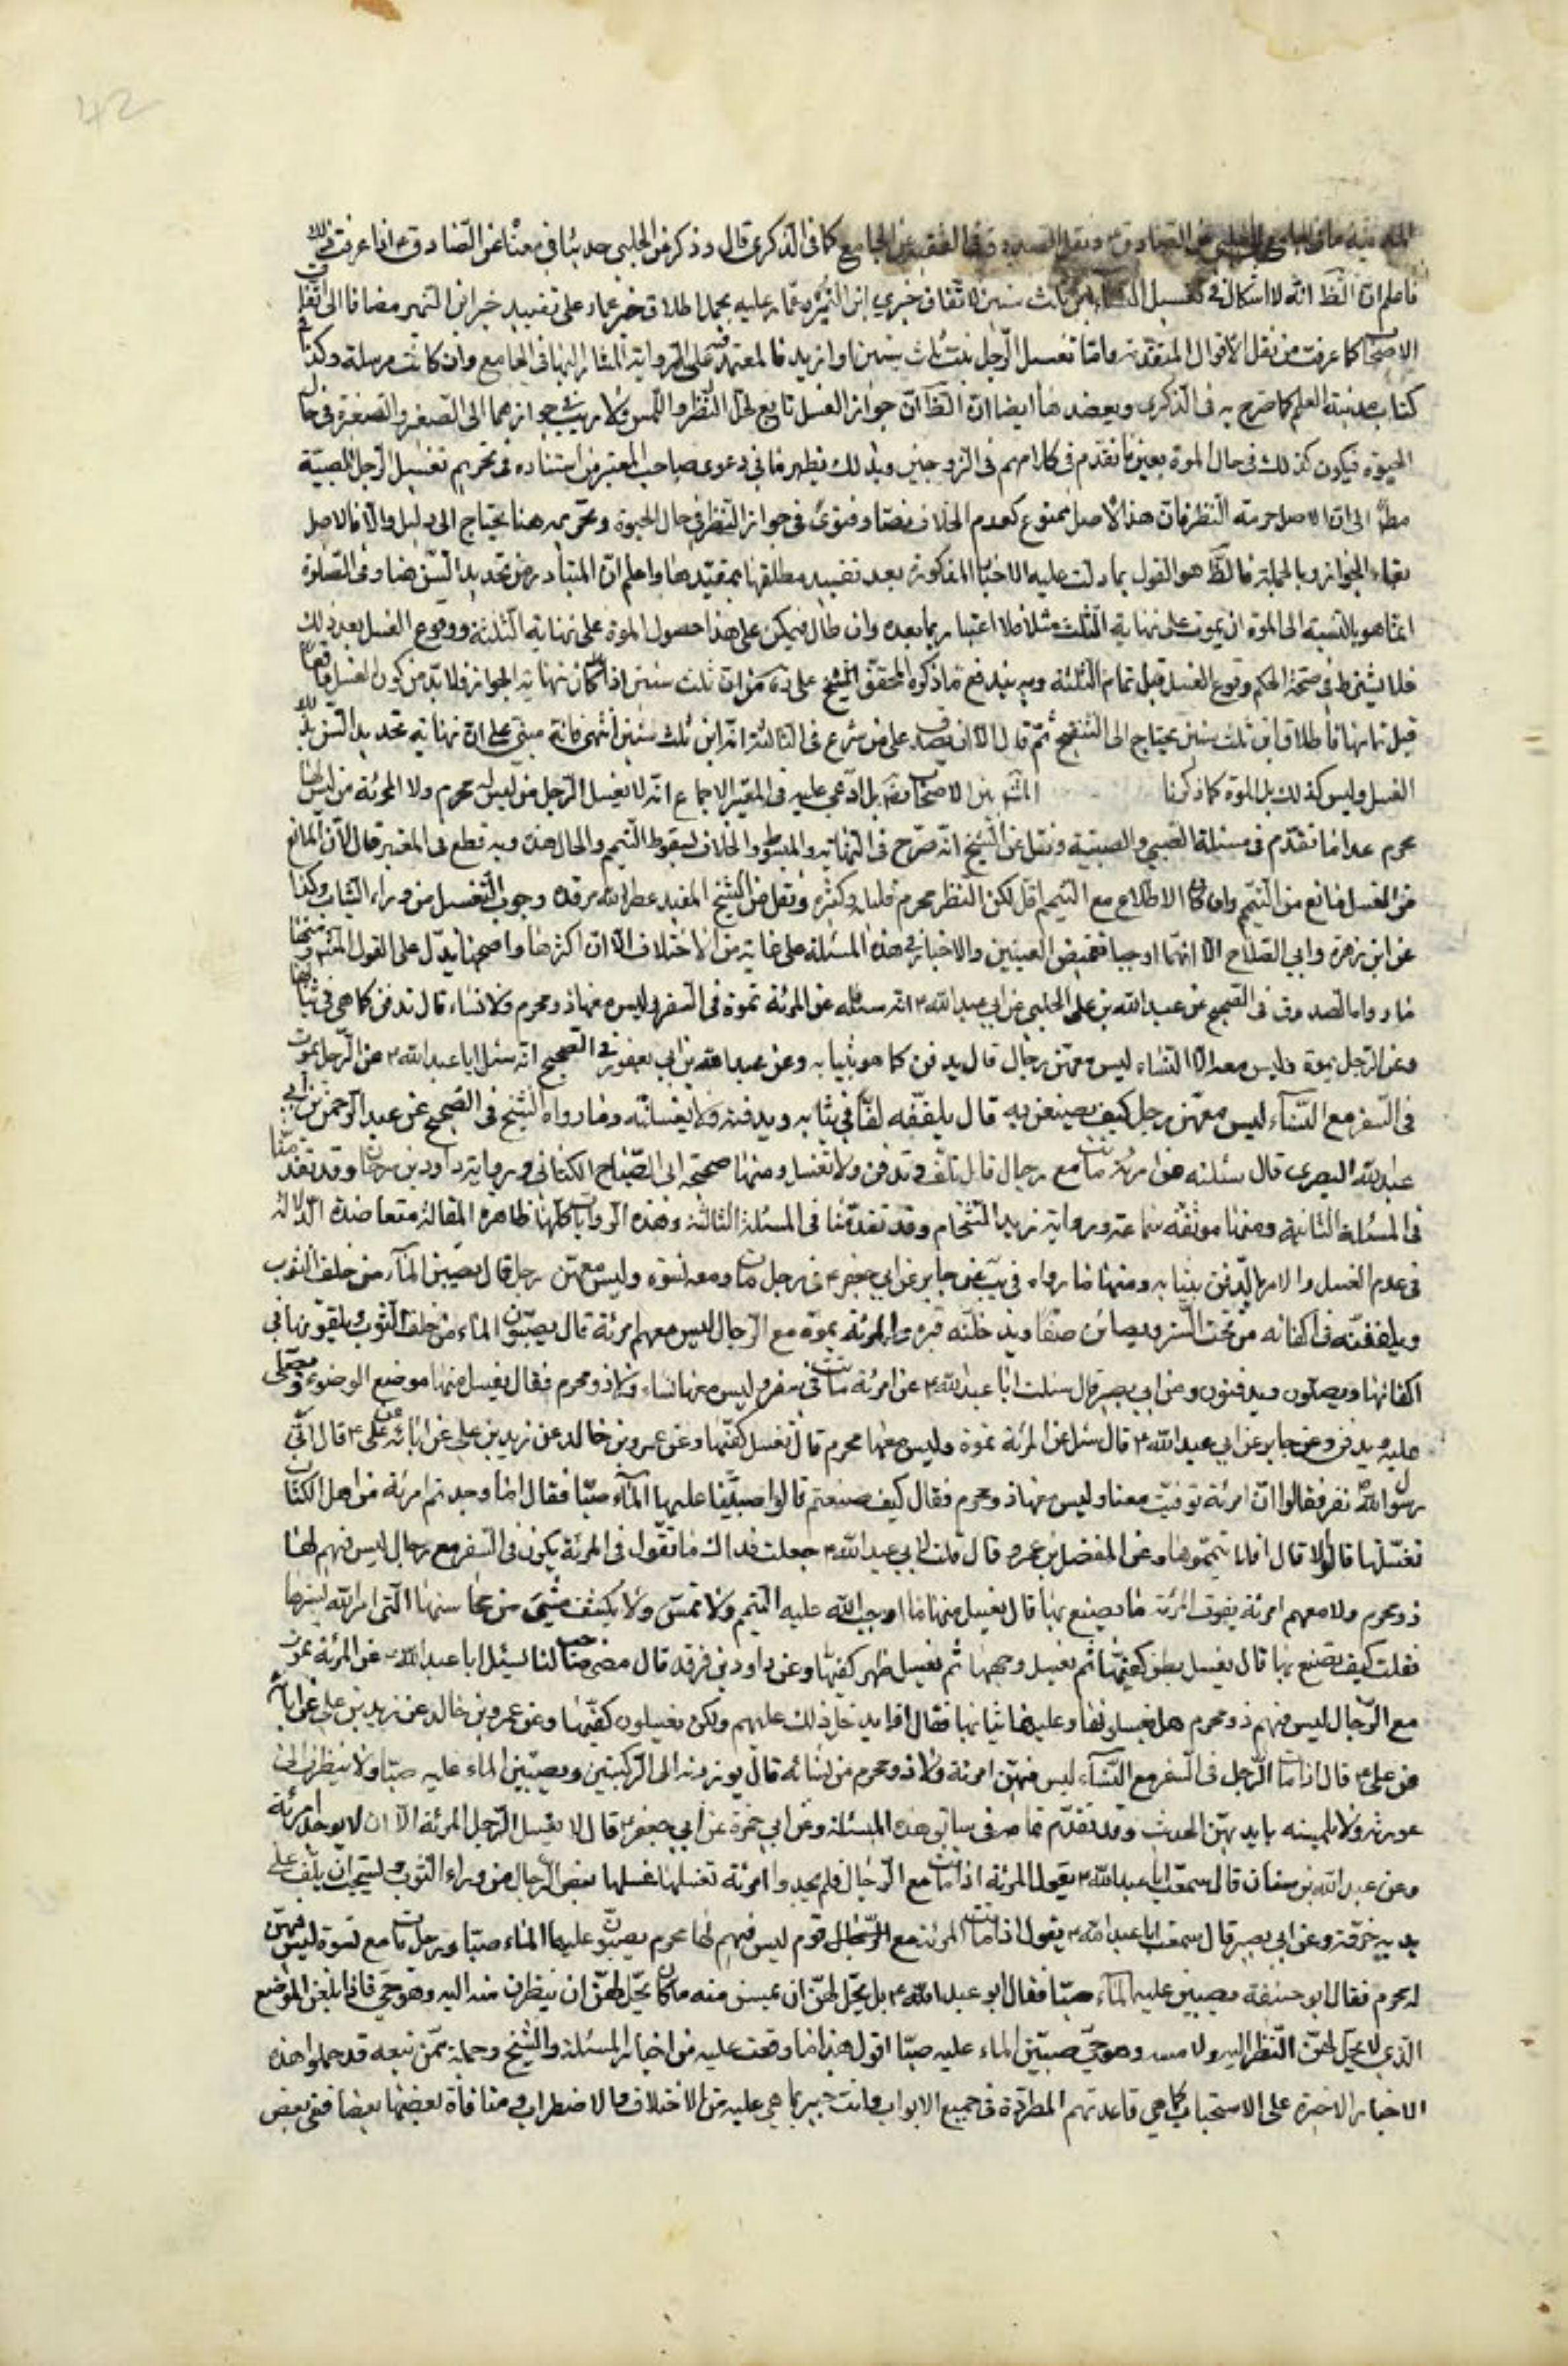 42
كما في الذكرى قال وذكر عن الحلبي حديثا في معناه عن الصادق ع اذا عرفت ذلك
فاعلم ان الظ انه لا اشكال في تغسيل النساء ابن ثلث سنين لاتفاق خبري ابن النمير وعمار عليه بحمل اطلاق خبر عمار على تقييد خبر ابن النمير مضافا الى اتفاق
الاصحاب كما عرفت من نقل الاقوال المتقدمة واما تغسيل الرجل بنت ثلث سنين او ازيد فالمعتمد فيه على الرواية المشار اليها في الجامع وان كانت مرسلة وكذا في
كتاب مدينة العلم كما صرح به في الذكرى ويعضدها ايضا ان الظ ان جواز الغسل تابع لحل النظر واللمس ولا ريب في جوازهما الى الصغير والصغيرة في حال
الحيوة فيكون كذلك في حال الموت بعين ما تقدم في كلامهم في الزوجين وبذلك يظهر ما في دعوى صاحب المعتبر من استناده في تحريم تغسيل الرجل الصبية
مط الى ان الاصل حرمة النظر فان هذا الاصل ممنوع كعدم الخلاف نصا وفتوى في جواز النظر في حال الحيوة وتحريمه هنا يحتاج الى دليل والا فالاصل
بقاء الجواز وبالجملة فالظ هو القول بما دلت عليه الاخبار المذكورة بعد تقييد مطلقها بمقيدها واعلم ان المتبادر من تحديد السن هنا وفي الصلوة
انما هو بالنسبة الى الموت ان يموت على نهاية الثلث مثلا فلا اعتبار بما بعده وان طال فيمكن على هذا حصول الموت على نهاية الثلثة ووقوع الغسل بعد ذلك
فلا يشترط في صحة الحكم وقوع الغسل قبل تمام الثلثة وبه يندفع ما ذكره المحقق الشيخ على ره من ان ثلث سنين اذا كان نهاية الجواز فلا بد من كون الغسل واقعا
قبل تمامها فاطلاق ابن ثلث سنين يحتاج الى التنقيح ثم قال الا ان يصدق على من شرع في الثالثة انه ابن ثلث سنين انتهى فانه مبني على ان نهاية تحديد السن بذلك
الغسل وليس كذلك بل الموت كما ذكرنا المشهور بين الاصحاب رض بل ادعي عليه في المعتبر الاجماع انه لا يغسل الرجل من ليس له بمحرم ولا المرئة من ليس لها
بمحرم عدا ما تقدم في مسئلة الصبي والصبية ونقل عن الشيخ انه صرح في النهاية والمبسوط والخلاف بسقوط التيمم والحال هذه وبه قطع في المعتبر قال لان المانع
من الغسل مانع من التيمم وان كان الاطلاع مع التيمم اقل لكن النظر محرم قليله وكثيره ونقل عن الشيخ المفيد عطر الله مرقده وجوب التغسيل من وراء الثياب وكذا
عن ابن زهرة وابي الصلاح الا انهما اوجبا تغميض العينين والاخبار في هذه المسئلة على غاية من الاختلاف الا ان اكثرها واصحها يدل على القول المشهور ومنها
ما رواه الصدوق في الصحيح عن عبيد الله بن علي الحلبي عن ابي عبد الله ع انه سئله عن المرئة تموت في السفر وليس معها ذو محرم ولا نساء قال تدفن كما هي في ثيابها
وعن الرجل يموت وليس معه الا النساء ليس معهن رجال قال يدفن كما هو بثيابه وعن عبد الله بن ابي يعفور في الصحيح انه سئل ابا عبد الله ع عن الرجل يموت
في السفر مع النساء ليس معهن رجل كيف يصنعن به قال يلففنه لفا في ثيابه ويدفنه ولا يغسلنه وما رواه الشيخ في الصحيح عن عبد الرحمن بن ابي
عبد الله البصري قال سئلته عن امرئة ماتت مع رجال قال تلف وتدفن ولا تغسل ومنها صحيحة ابي الصباح الكناني ورواية داود بن سرحان وقد تقدمتا
في المسئلة الثانية ومنها موثقة سماعة ورواية زيد الشحام وقد تقدمتا في المسئلة الثالثة وهذه الروايات كلها ظاهرة المقالة متعاضدة الدلالة
في عدم الغسل والامر بالدفن بثيابه ومنها ما رواه في يب عن جابر عن ابي جعفر ع في رجل مات ومعه نسوة وليس معهن رجل قال يصببن الماء من خلف الثوب
ويلففنه في اكفانه من تحت الستر ويصلين صفا ويدخلنه قبره والمرئة تموت مع الرجال ليس معهم امرئة قال يصبون الماء من خلف الثوب ويلفونها في
اكفانها ويصلون ويدفنون وعن ابي بصير قال سئلت ابا عبد الله ع عن امرئة ماتت في سفر وليس معها نساء ولا ذو محرم فقال يغسل منها موضع الوضوء ويصلى
عليه ويدفن وعن جابر عن ابي عبد الله ع قال سئل عن المرئة تموت وليس معها محرم قال تغسل كفيها وعن عمرو بن خالد عن زيد بن علي عن ابائه عن علي ع قال اتى
رسول الله ص نفر فقالوا ان امرئة توفيت معنا وليس معها ذو محرم فقال كيف صنعتم قالوا صببنا عليها الماء صبا فقال اما وجدتم امرئة من اهل الكتاب
تغسلها قالوا لا قال افلا يممتموها وعن المفضل بن عمر قال قلت لابي عبد الله ع جعلت فداك ما تقول في المرئة يكون في السفر مع رجال ليس فيهم لها
ذو محرم ولا معهم امرئة فتموت المرئة ما يصنع بها قال يغسل منها ما اوجب الله عليه التيمم ولا تمس ولا يكشف شيء من محاسنها التي امر الله بسترها
فقلت كيف يصنع بها قال يغسل بطن كفيها ثم يغسل وجهها ثم يغسل ظهر كفيها وعن داود بن فرقد قال مضى صاحب لنا يسئل ابا عبد الله ع عن المرئة تموت
مع الرجال ليس فيهم ذو محرم هل يغسلونها وعليها ثيابها فقال اذا يدخل ذلك عليهم ولكن يغسلون كفيها وعن عمرو بن خالد عن زيد بن علي عن ابائه
عن علي ع قال اذا مات الرجل في السفر مع النساء ليس فيهن امرئة ولا ذو محرم من نسائه قال يوزرنه الى الركبتين ويصببن الماء عليه صبا ولا ينظرن الى
عورته ولا يلمسنه بايديهن الحديث وقد تقدم تمامه في سابق هذه المسئلة وعن ابي حمزة عن ابي جعفر ع قال لا يغسل الرجل المرئة الا ان لا يوجد امرئة
وعن عبد الله بن سنان قال سمعت ابا عبد الله ع يقول المرئة اذا ماتت مع الرجال فلم يجدوا امرئة تغسلها غسلها بعض الرجال من وراء الثوب ويستحب ان يلف على
يديه خرقة وعن ابي بصير قال سمعت ابا عبد الله ع يقول اذا ماتت المرئة مع الرجال قوم ليس فيهم لها محرم يصبون عليها الماء صبا ورجل مات مع نسوة ليس فيهن
له محرم فقال ابو حنيفة يصببن عليه الماء صبا فقال ابو عبد الله ع بل يحل لهن ان يمسسن منه ما كان يحل لهن ان ينظرن منه اليه وهو حي فاذا بلغن الموضع
الذي لا يحل لهن النظر اليه ولا مسه وهو حي صببن الماء عليه صبا اقول هذا ما وقفت عليه من اخبار المسئلة والشيخ وجملة ممن تبعه قد حملوا هذه
الاخبار الاخيرة على الاستحباب كما هي قاعدتهم المطردة في جميع الابواب وانت خبير بما هي عليه من الاختلاف والاضطراب ومنافاة بعضها بعضا ففي بعض